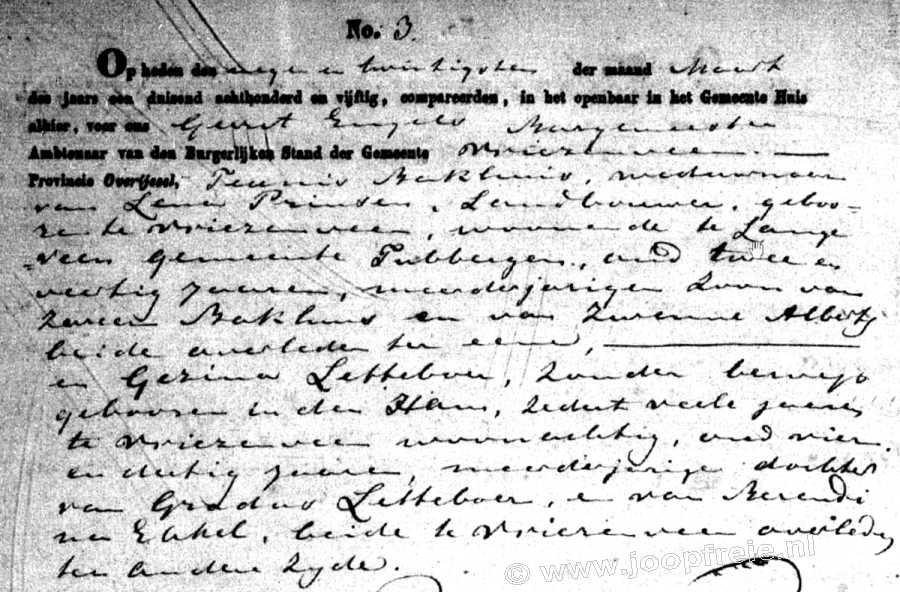 No. 3.
Op heden den negen en twintigsten der maand Maart
des jaars een duizend achthonderd en vijftig, compareerden, in het openbaar in het Gemeente Huis
alhier, voor ons Gerrit Engels Burgemeester
Ambtenaar van den Burgerlijken Stand der Gemeente Vriezenveen
Provincie Overijssel, Teunis Bakhuis, weduwnaar
van Lena Prinsen, Landbouwer, geboo-
ren te Vriezenveen, woonende te Lange
veen gemeente Tubbergen, oud twee en
veertig jaaren, meerderjarigen zoon van
Bakhuis en van Alberts
beide overleden ter eene,
en Gezina Letteboer, zonder beroep
geboren in den Ham, zedert veele jaren
te Vriezenveen woonachtig, oud vier
en dertig jaaren, meerderjarige dochter
van Gradus Letteboer, en van Berendi
na beide te Vriezenveen overleden
ter andere zyde.
© www.joopfreie.nl